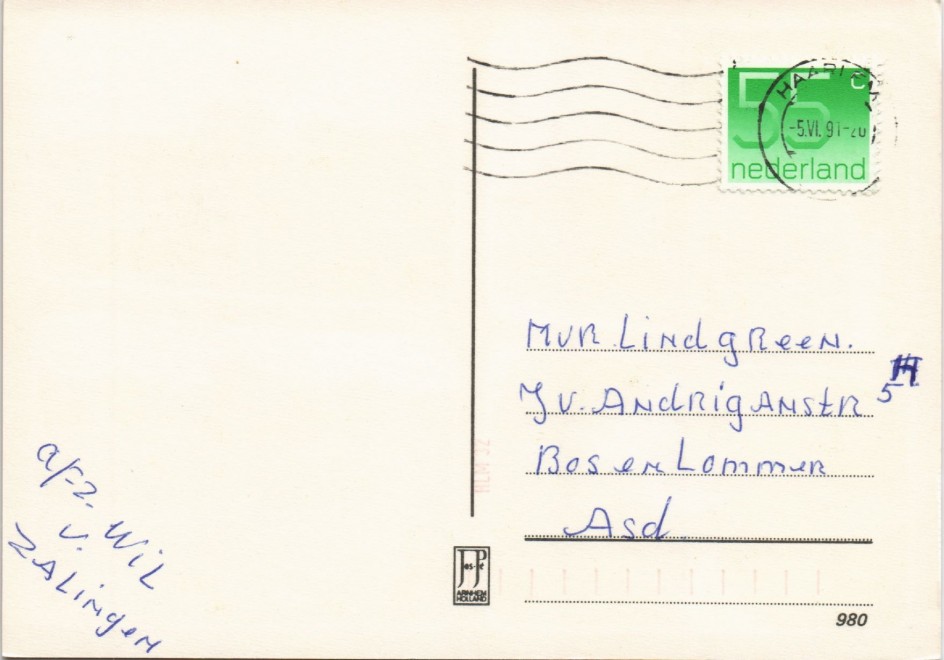 55 c
nederland
HAARLEM
-5.VI.91-20
MVR. Lindgreen.
J v. Andriganstr 5
Bos en Lommer
Asd.
afz. Wil
v.
Zalingen
HLM 32
Jos-Pé
ARNHEM
HOLLAND
980